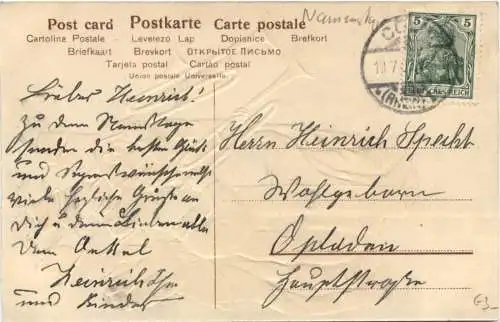 Post card Postkarte Carte postale
Cartolina Postale – Levelező Lap Dopisnice – Brefkort
Briefkaart – Brevkort – ОТКРЫТОЕ ПИСЬМО
Tarjeta postal – Cartão postal
Union postale Universelle.
5 5
DEUTSCHES REICH
(RHEIN)
Lieber Heinrich!
Zu dem Namenstage
senden die besten Glück
und Segenswünsche
viele herzliche Grüße an
Dich u. deine Lieben alle
Dein Onkel
Heinrich
und Kinder
Herrn Heinrich Specht
Wohlgeboren
Opladen
Hauptstraße